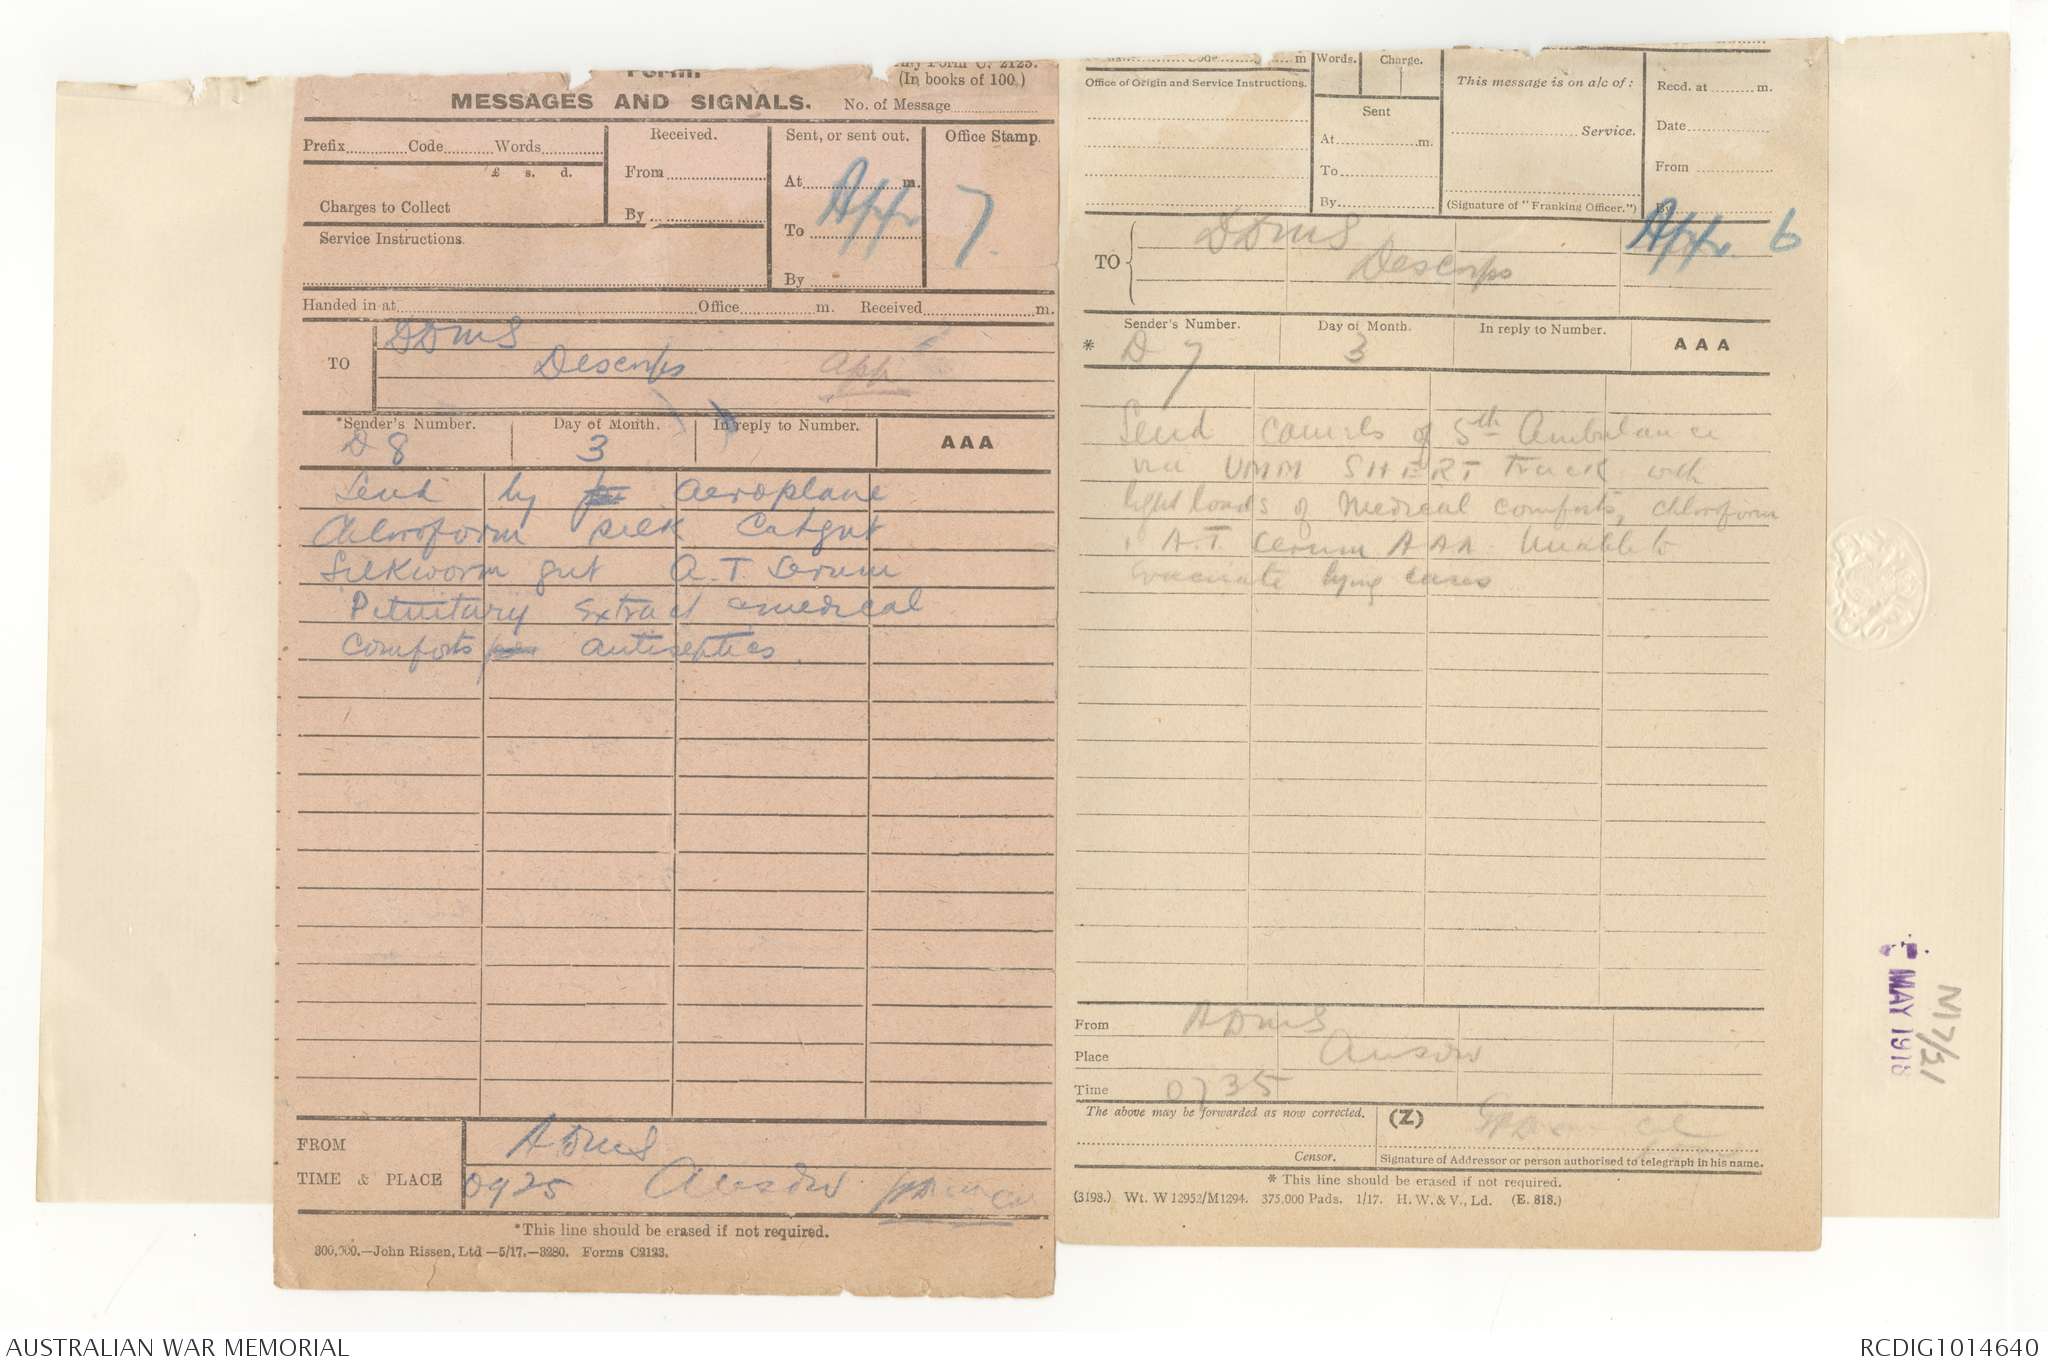 Form.
(In books of 100.)
MESSAGES AND SIGNALS.
No. of Message
Prefix Code Words
£ s. d.
Charges to Collect
Service Instructions.
Received.
From
By
Sent, or sent out.
At m.
To
By
Office Stamp.
Appx 7.
Handed in at Office m. Received m.
TO
DDMS
Descorps
App
*Sender's Number.
Day of Month.
In reply to Number.
AAA
D 8
3
Send by Aeroplane
Chloroform silk Catgut
Silkworm gut A.T. Serum
Pituitary Extract medical
Comforts antiseptics
FROM
ADMS
TIME & PLACE
0925 Ausdiv
*This line should be erased if not required.
300,000.—John Rissen, Ltd —5/17.—3280. Forms C2123.
Code m
Words.
Charge.
Office of Origin and Service Instructions.
Sent
At m.
To
By
This message is on a/c of:
Service.
(Signature of "Franking Officer.")
Recd. at m.
Date
From
By
Appx. 6
TO
DDMS
Descorps
Sender's Number.
Day of Month.
In reply to Number.
AAA
* D 7
3
Send camels of 5th Ambulance
via UMM SHERT Track with
light loads of Medical comforts, chloroform
A.T. Serum AAA Unable to
evacuate lying cases
From
ADMS
Place
Ausdiv
Time
0735
The above may be forwarded as now corrected.
(Z)
Censor.
Signature of Addressor or person authorised to telegraph in his name.
* This line should be erased if not required.
(3198.) Wt. W 12952/M1294. 375,000 Pads. 1/17. H. W. & V., Ld. (E. 818.)
MAY 1918
N17/21
AUSTRALIAN WAR MEMORIAL
RCDIG1014640